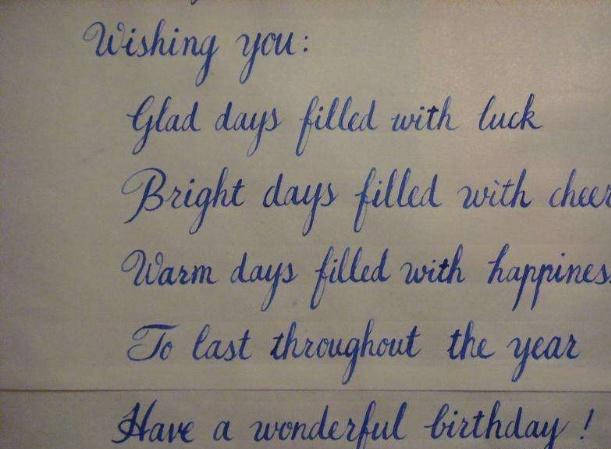 Wishing you:
Glad days filled with luck
Bright days filled with cheer
Warm days filled with happines
To last throughout the year
Have a wonderful birthday !